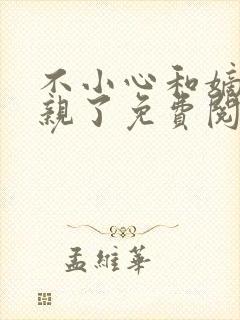 不小心和嫡
親了免費閱
孟維華